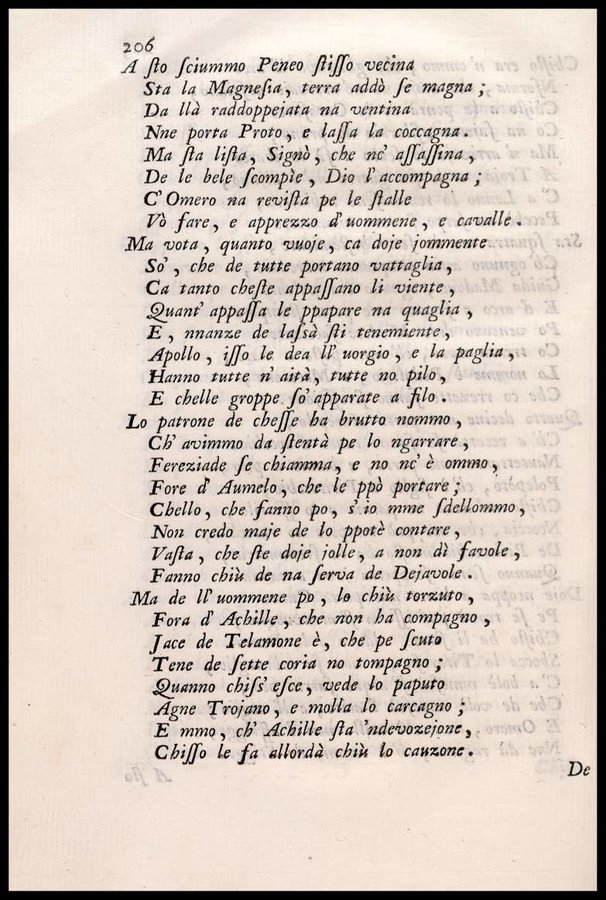 206
A ſto ſciummo Peneo ſtiſſo vecina
Sta la Magneſia, terra addò ſe magna;
Da llà raddoppejata na ventina
Nne porta Proto, e laſſa la coccagna.
Ma ſta liſta, Signò, che nc' aſſaſſina,
De le bele ſcompìe, Dio l'accompagna;
C'Omero na reviſta pe le ſtalle
Vò fare, e apprezzo d'uommene, e cavalle.
Ma vota, quanto vuoje, ca doje jommente
So', che de tutte portano vattaglia,
Ca tanto cheſte appaſſano li viente,
Quant' appaſſa le ppapare na quaglia,
E, nnanze de laſsà ſti tenemiente,
Apollo, iſſo le dea ll' uorgio, e la paglia,
Hanno tutte n' aità, tutte no pilo,
E chelle groppe ſo' apparate a filo.
Lo patrone de cheſſe ha brutto nommo,
Ch' avimmo da ſtentà pe lo ngarrare,
Fereziade ſe chiamma, e no nc' è ommo,
Fore d' Aumelo, che le ppò portare;
Chello, che fanno po, s'io mme ſdellommo,
Non credo maje de lo ppotè contare,
Vaſta, che ſte doje jolle, a non dì favole,
Fanno chiù de na ſerva de Dejavole.
Ma de ll' uommene po, lo chiù torzuto,
Fora d' Achille, che non ha compagno,
Jace de Telamone è, che pe ſcuto
Tene de ſette coria no tompagno;
Quanno chiſs' eſce, vede lo paputo
Agne Trojano, e molla lo carcagno;
E mmo, ch' Achille ſta 'ndevozejone,
Chiſſo le fa allordà chiù lo cauzone.
De